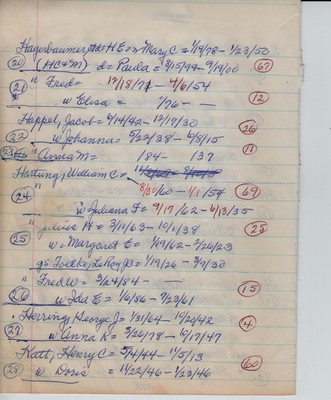 Hagenbaumer, H E = Mary C = 1/19/78 - 1/23/50
20 (HC&M) d= Paula = 8/15/99 - 9/19/00 67
" Fred = 12/18/71 - 4/6/54
21 w Elisa = 1/76 - - 12
Happel, Jacob = 4/14/42 - 12/17/30 26
22 w Johanna = 5/22/38 - 6/8/15
23 " Anna M = 184- 137 11
Hattung, William C =
" 8/30/60 - 4/1/54 69
24 w Juliana F = 9/17/62 - 6/13/35
" Julius H = 3/11/63 - 10/1/38 25
25 w = Margaret E = 1/19/62 - 2/26/23
gs Foelke, LeRoy D = 1/19/26 - 3/9/30
" Fred W = 3/24/84 - - 15
26 w Ida E = 1/6/86 - 7/23/61
Herring, George J = 1/31/64 - 10/20/42 4
27 w Anna K = 3/26/78 - 10/17/47
Katt, Henry C = 5/4/44 - 1/5/13 60
28 w Doris = 11/22/46 - 1/23/46